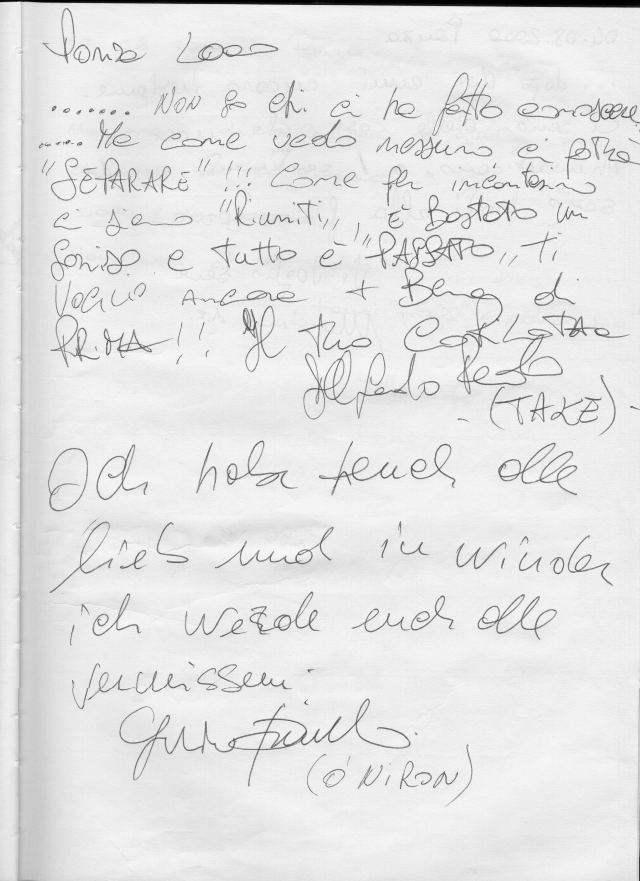 Ponza Loao
....... NON so chi ci ha fatto conoscere
..... Ma come vedo nessuno ci potrà
"SEPARARE"!!! Come per incontanno
ci siamo "Riuniti,,, E Bastato un
Soriso e tutto è "PASSATO,, ti
VOGLIO ancora + Bene di
PRIMA!! Il tuo
(TAKE)
Ich habe euch alle
lieb und in
ich werde euch alle
vermissen.
(O' NIRON)